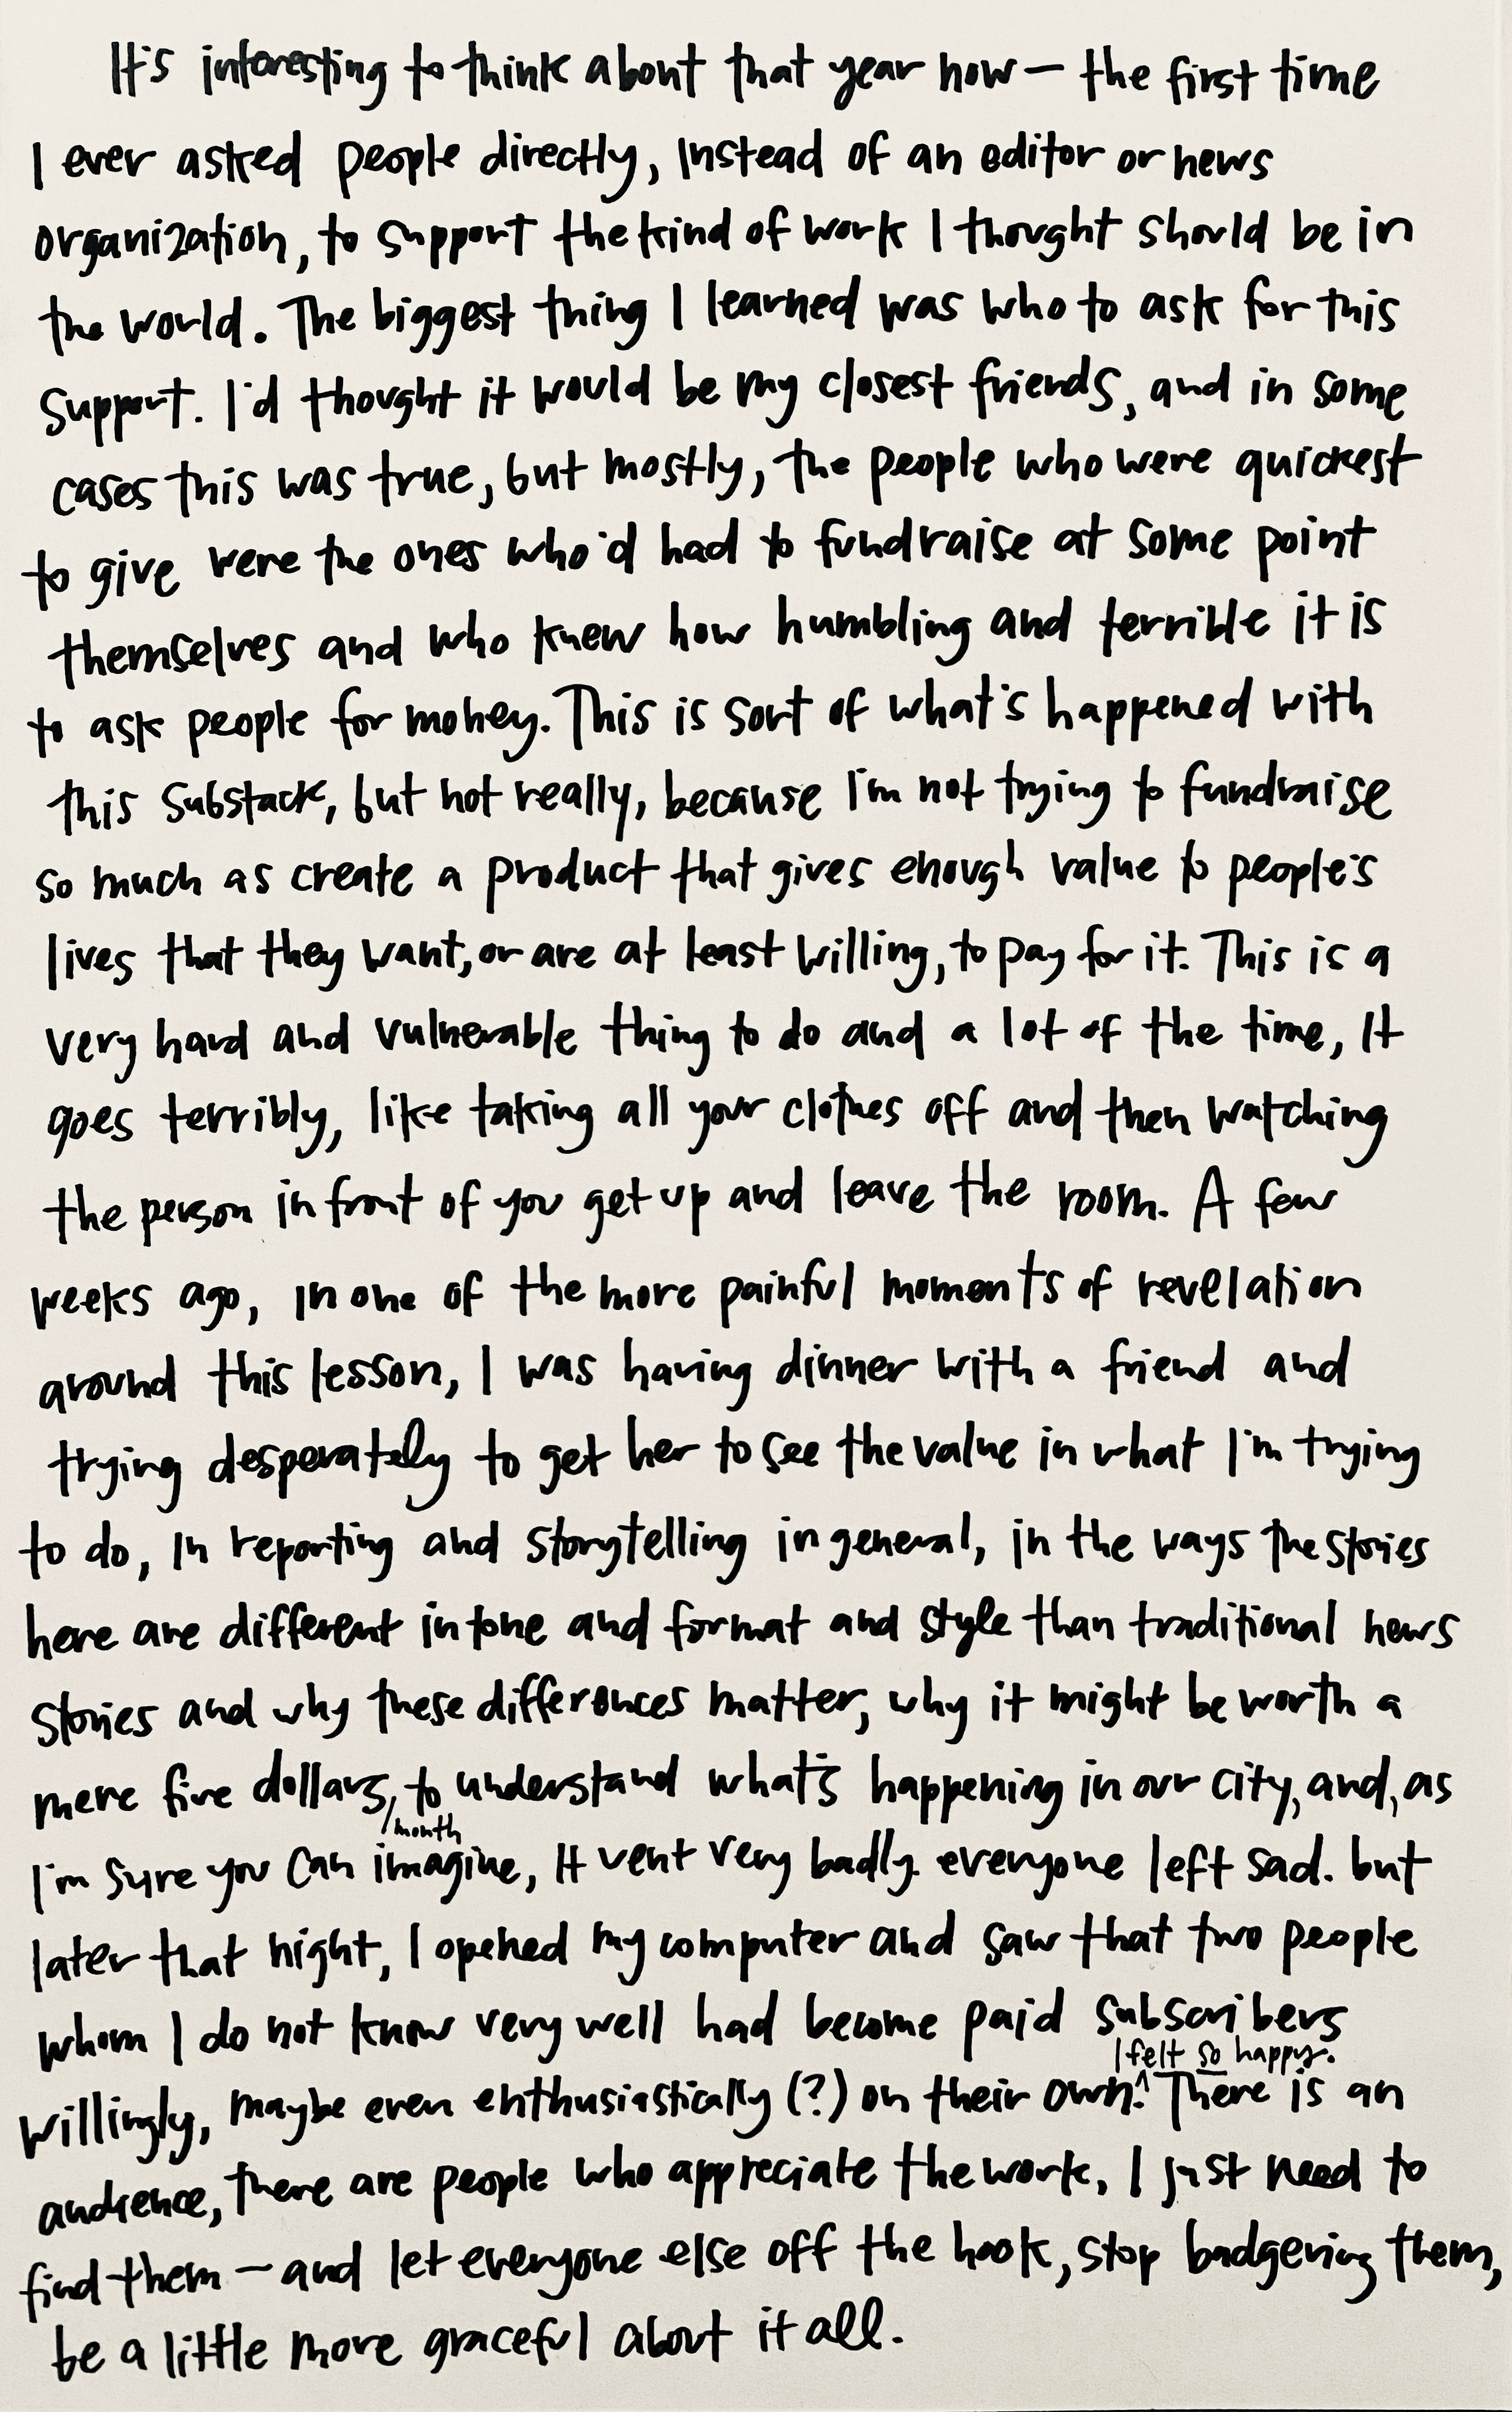 It's interesting to think about that year now — the first time
I ever asked people directly, instead of an editor or news
organization, to support the kind of work I thought should be in
the world. The biggest thing I learned was who to ask for this
support. I'd thought it would be my closest friends, and in some
cases this was true, but mostly, the people who were quickest
to give were the ones who'd had to fundraise at some point
themselves and who knew how humbling and terrible it is
to ask people for money. This is sort of what's happened with
this Substack, but not really, because I'm not trying to fundraise
so much as create a product that gives enough value to people's
lives that they want, or are at least willing, to pay for it. This is a
very hard and vulnerable thing to do and a lot of the time, it
goes terribly, like taking all your clothes off and then watching
the person in front of you get up and leave the room. A few
weeks ago, in one of the more painful moments of revelation
around this lesson, I was having dinner with a friend and
trying desperately to get her to see the value in what I'm trying
to do, in reporting and storytelling in general, in the ways the stories
here are different in tone and format and style than traditional news
stories and why these differences matter, why it might be worth a
mere five dollars, to understand what's happening in our city, and, as
/month
I'm sure you can imagine, it went very badly. everyone left sad. but
later that night, I opened my computer and saw that two people
whom I do not know very well had become paid subscribers
I felt so happy.
willingly, maybe even enthusiastically (?) on their own!^ There is an
audience, there are people who appreciate the work, I just need to
find them — and let everyone else off the hook, stop badgering them,
be a little more graceful about it all.